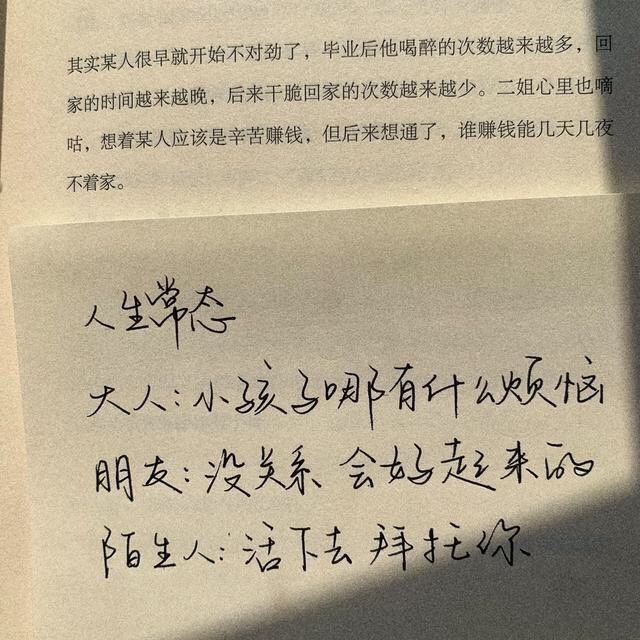 其实某人很早就开始不对劲了，毕业后他喝醉的次数越来越多，回
家的时间越来越晚，后来干脆回家的次数越来越少。二姐心里也嘀
咕，想着某人应该是辛苦赚钱，但后来想通了，谁赚钱能几天几夜
不着家。
人生常态
大人：小孩子哪有什么烦恼
朋友：没关系 会好起来的
陌生人：活下去 拜托你